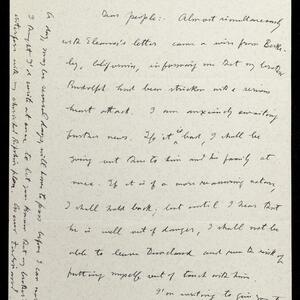 Dear people:- Almost simultaneously
with Eleanor's letter came a wire from Berke-
ley, California, informing me that my brother
Rudolph had been stricken with a serious
heart attack. I am anxiously awaiting
further news. If it is bad, I shall be
going out there to him and his family at
once. If it is of a more reassuring nature,
I shall hold back, but until I hear that
he is well out of danger, I shall not be
able to leave and run the risk of
putting myself out of touch with him
I'm writing to give you
A day, may be several days, will have to pass before I can
I thought I'd write at once to let you know that my brother's
interferes with my plan.